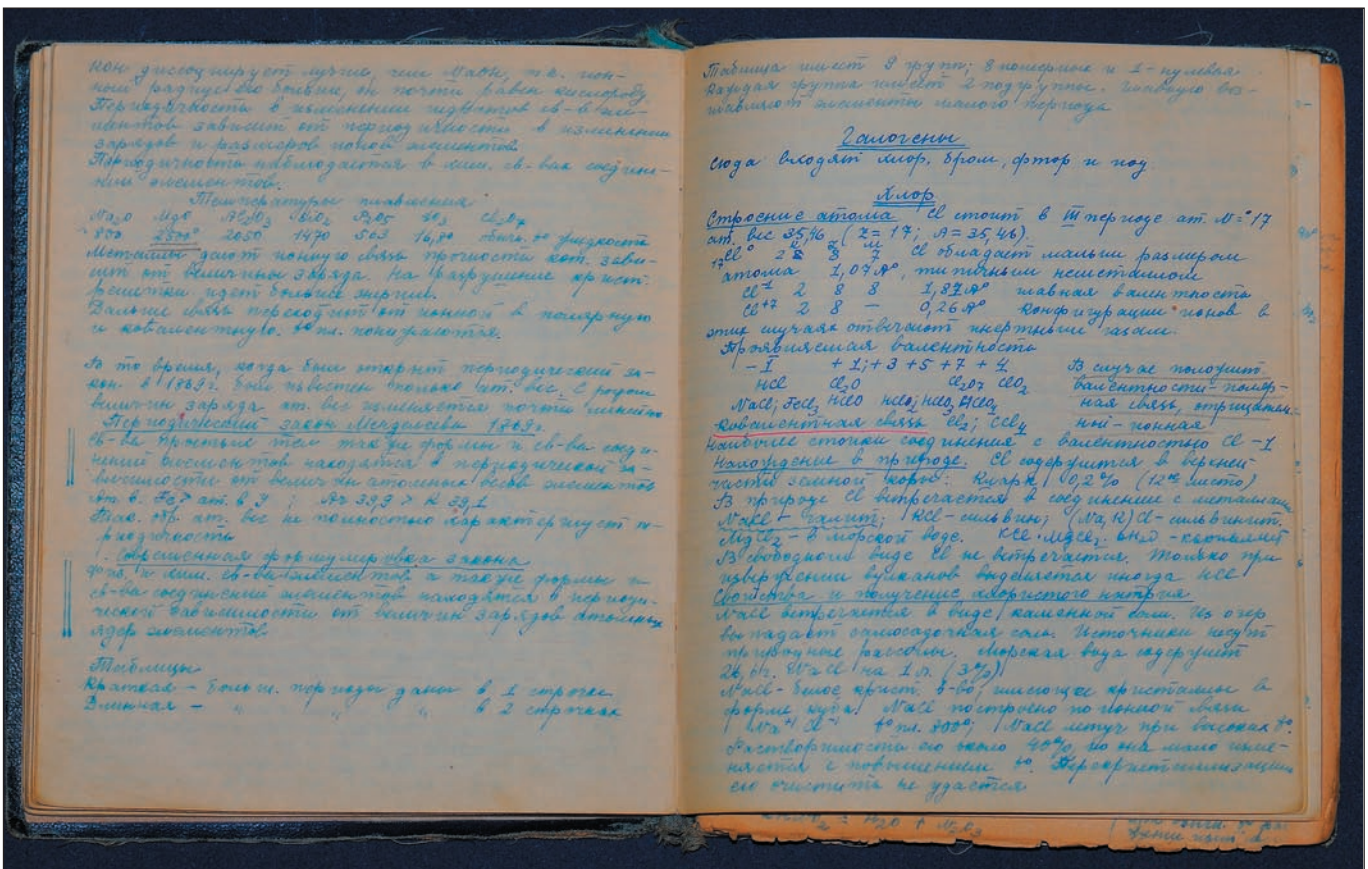 KOH диссоциирует лучше, чем NaOH, т.к. ион-
ный радиус его больше, он почти равен кислороду.
Периодичность в изменении св-в эле-
ментов зависит от периодичности в изменении
зарядов и размеров ионов элементов.
Периодичность наблюдается в хим. св-вах соедине-
ний элементов.
Температуры плавления
Na₂O MgO Al₂O₃ SiO₂ P₂O₅ SO₃ Cl₂O₇
800 2500° 2050 1470 563 16,8° обычн. t° жидкость
Металлы дают ионную связь прочность кот. зави-
сит от величины заряда. На разрушение крист.
решетки идет больше энергии.
Дальше связь переходит от ионной в полярную
и ковалентную. t° пл. понижаются.
В то время, когда был открыт периодический за-
кон в 1869г. был известен только ат. вес. С ростом
величин заряда ат. вес изменяется почти линейно
Периодический закон Менделеева 1869г.
Св-ва простых тел также формы и св-ва соеди-
нений элементов находятся в периодической за-
висимости от величин атомных весов элементов
Ат. в. Te > ат. в J ; Ar 39,9 > K 39,1
Так. обр. ат. вес не полностью характеризует пе-
риодичность
Современная формулировка закона
физ. и хим. св-ва элементов а также формы и
св-ва соединений элементов находятся в периоди-
ческой зависимости от величин зарядов атомных
ядер элементов.
Таблицы
Краткая – больш. периоды даны в 1 строчке
Длинная – " " " в 2 строчках
Таблица имеет 9 групп; 8 номерных и 1-нулевая
Каждая группа имеет 2 подгруппы. Главную воз-
главляют элементы малого периода
Галогены
Сюда входят хлор, бром, фтор и йод.
Хлор
Строение атома Cl стоит в III периоде ат. N=° 17
ат. вес 35,46 (Z = 17; A = 35,46).
K L M
₁₇Cl° 2 8 7 Cl обладает малым размером
атома 1,07 A°, типичным неметаллом
Cl⁻¹ 2 8 8 1,81 A° главная валентность
Cl⁺⁷ 2 8 – 0,26 A° Конфигурации ионов в
этих случаях отвечают инертным газам.
Проявляемая валентность
-1 +1; +3 +5 +7 +4 В случае положит.
HCl Cl₂O Cl₂O₇ ClO₂ валентности – поляр-
NaCl; FeCl₃ HClO HClO₂; HClO₃ HClO₄ ная связь, отрицатель-
ной – ионная
Ковалентная связь Cl₂; CCl₄
Наиболее стойки соединения с валентностью Cl -1
Нахождение в природе. Cl содержится в верхней
части земной коры. Кларк 0,2% (12ое место)
В природе Cl встречается в соединении с металлами
NaCl – галит; KCl – сильвин; (Na, K)Cl – сильвинит.
MgCl₂ – в морской воде. KCl · MgCl₂ · 6H₂O – карналлит
В свободном виде Cl не встречается. Только при
извержении вулканов выделяется иногда HCl
Свойства и получение хлористого натрия
NaCl встречается в виде каменной соли. Из озер
выпадает самосадочная соль. Источники несут
природные рассолы. Морская вода содержит
NaCl на 1 л. (3%)
NaCl – белое крист. в-во, имеющее кристаллы в
форме куба. NaCl построено по ионной связи
Na⁺¹ Cl⁻¹ t° пл. 800°; NaCl летуч при высоких t°.
Растворимость его около 40%, но она мало изме-
няется с повышением t°. Перекристаллизацией
его очистить не удается.
= H₂O + N₂O₃